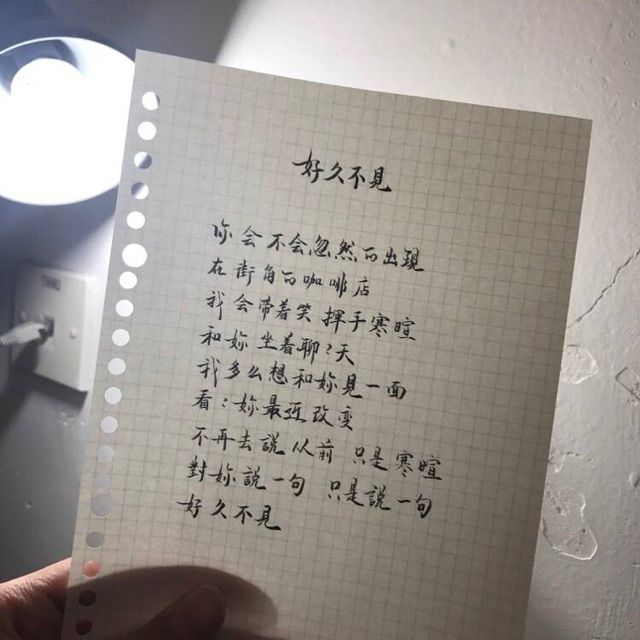 好久不見
你会不会忽然的出現
在街角的咖啡店
我会带着笑 揮手寒暄
和妳 坐着聊?天
我多么想和妳見一面
看?妳最近改变
不再去說从前 只是寒暄
對妳說一句 只是說一句
好久不見